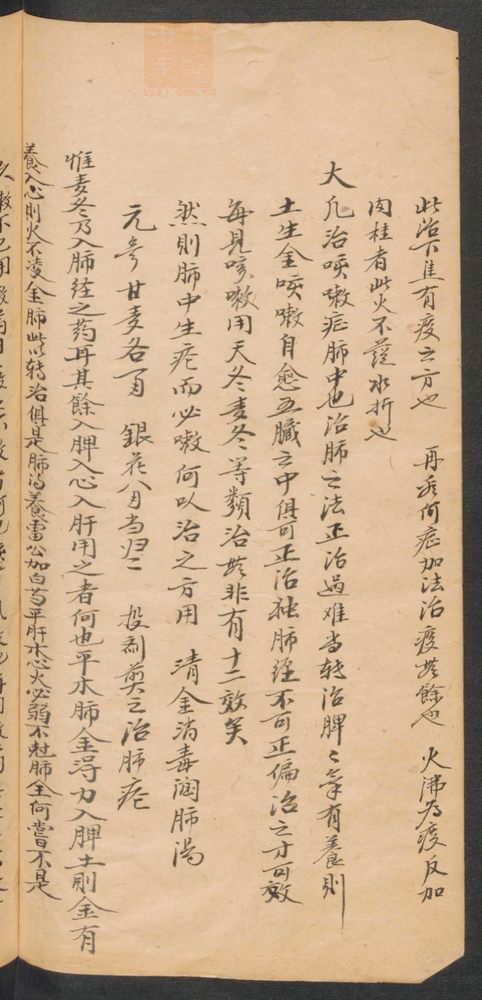 此治下焦有痰之方也 再看何症加法治痰無餘也 火沸為痰反加
肉桂者此火不蒸水折也
大凡治咳嗽症肺中也治肺之法正治過难当转治脾〻氣有養則
土生金咳嗽自愈五臟之中俱可正治独肺经不可正偏治之才可效
每見咳嗽用天冬麦冬等類治無非有十二效矣
然則肺中生疮而必嗽何以治之方用 清金消毒润肺湯
元參甘麦各 銀花八 当归二 投剂煎之治肺疮
惟麦冬乃入肺经之药耳其餘入脾入心入肝用之者何也平木肺金得力入脾土則金有
養入心則火不凌金肺此转治俱是肺得養雷公加白芍平肝木心火必弱不尅肺金何嘗不是